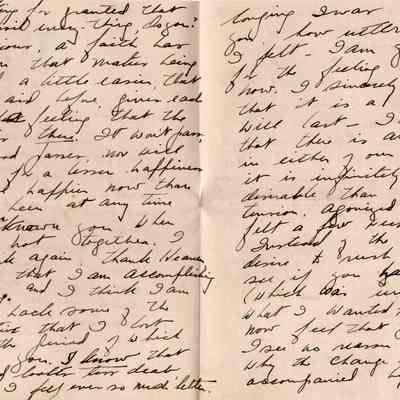 for granted that
every thing, do you?
a faith has
that makes being
a little easier, that
said before, gives each
feeling that the
is there. It won't pass,
and passes, nor will
for a lesser happiness
happier now than
been at any time
known you when
not together. I
again, thank Heaven
that I am accomplishing
and I think I am
lack some of the
that I lost
the period of which
you. I know that
I feel ever so much better.
longing I was
you how utterly
I felt — I am
for the feeling
now. I sincerely
that it is a
will last — I
that there is
in either of our
it is infinitely
desirable than
tension, agonized
felt a few
Instead of the
desire to rush
see if you
(which was
what I wanted
now feel that
I see no reason
why the change
accompanied